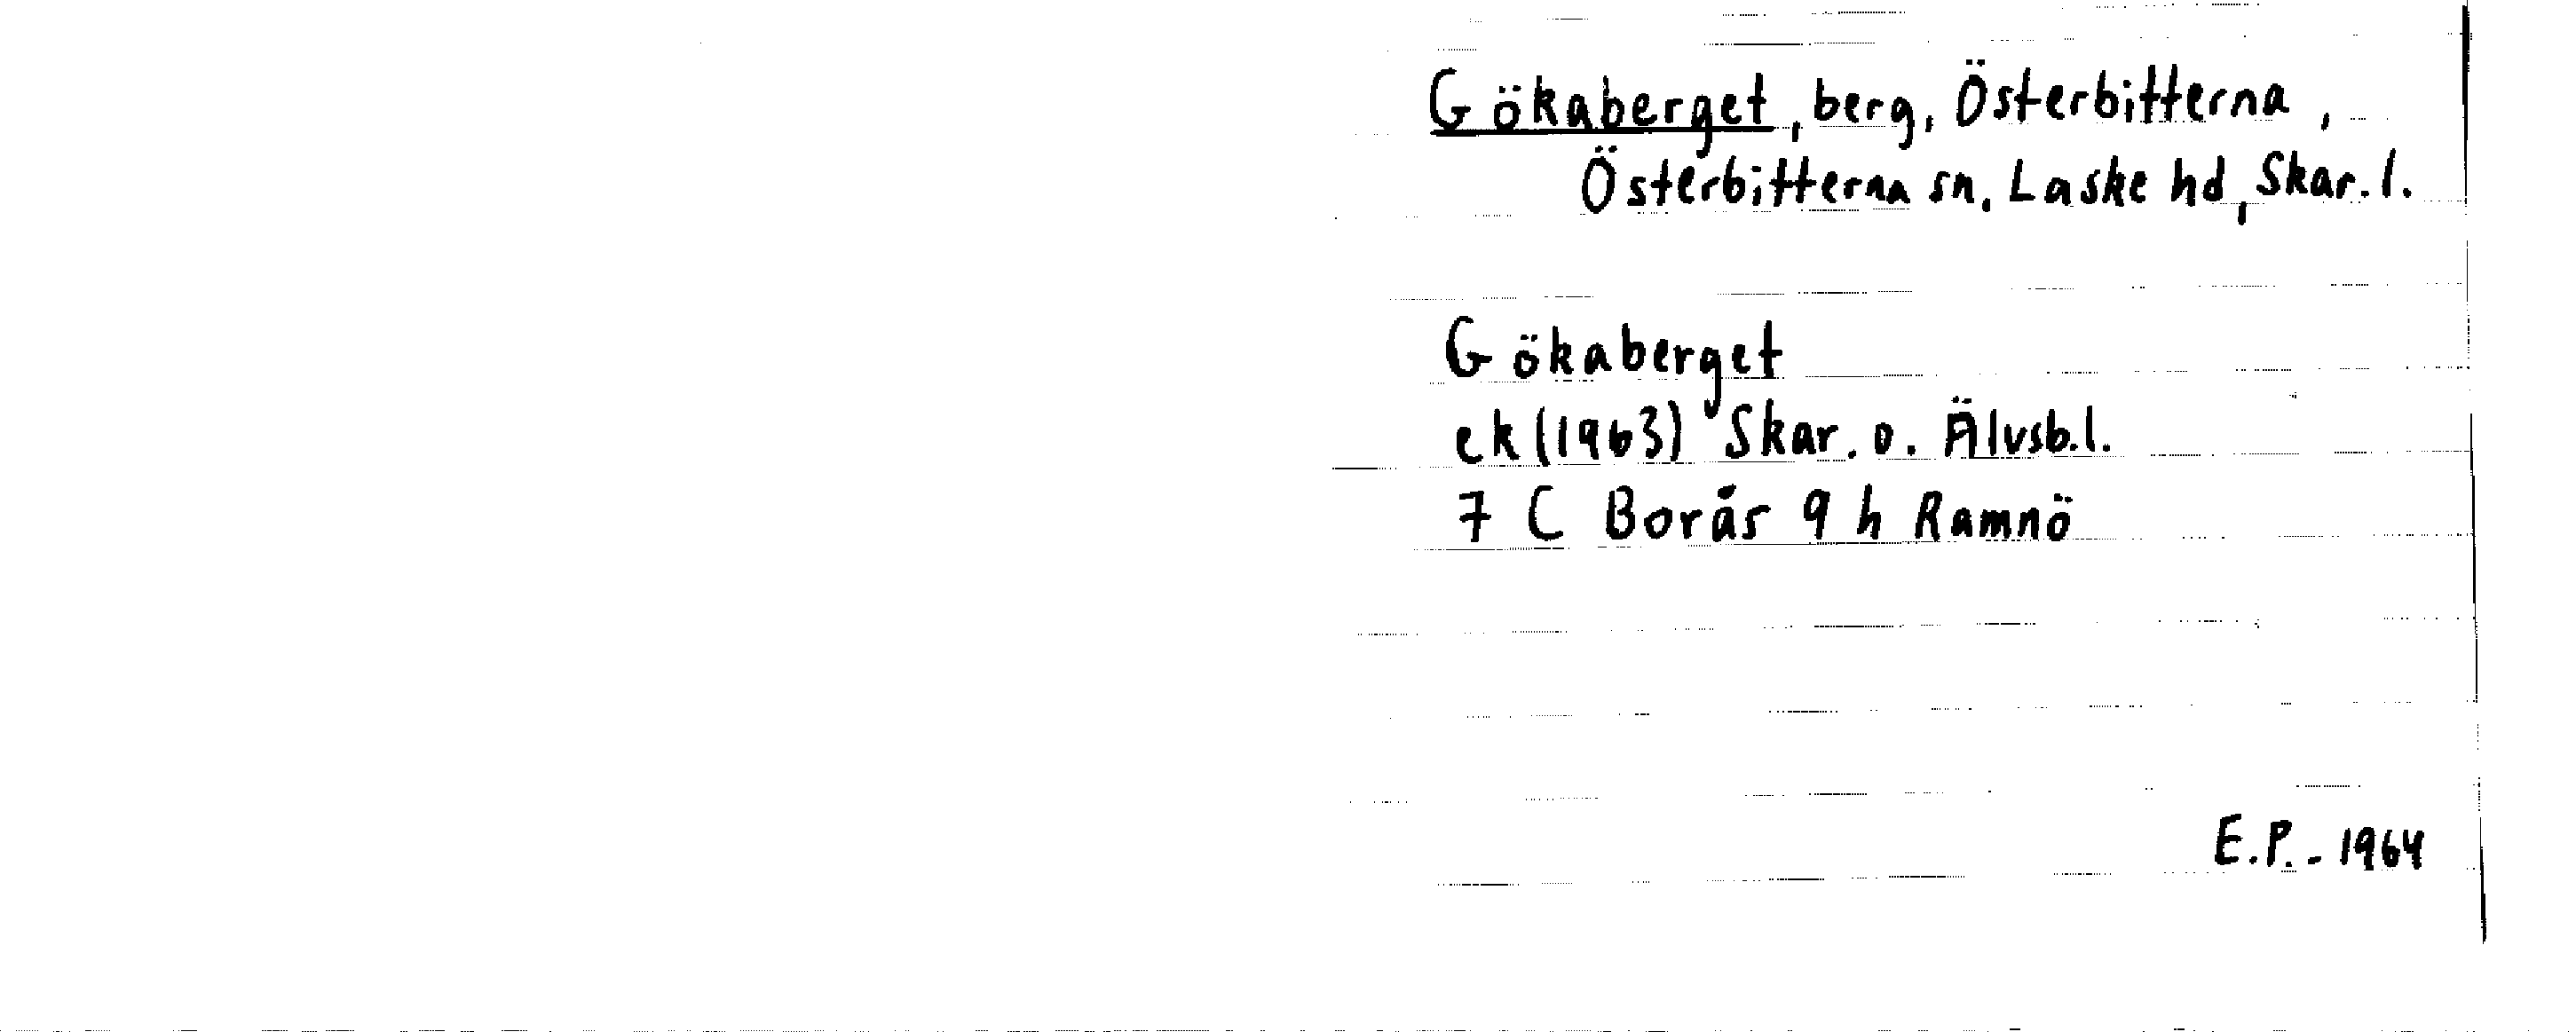 Gökaberget, berg, Österbitterna,
Österbitterna sn. Laske hd, Skar. l.
Gökaberget
ek (1963) Skar. o. Älvsb.l.
7 C Borås 9 h Ramnö
E.P. - 1964